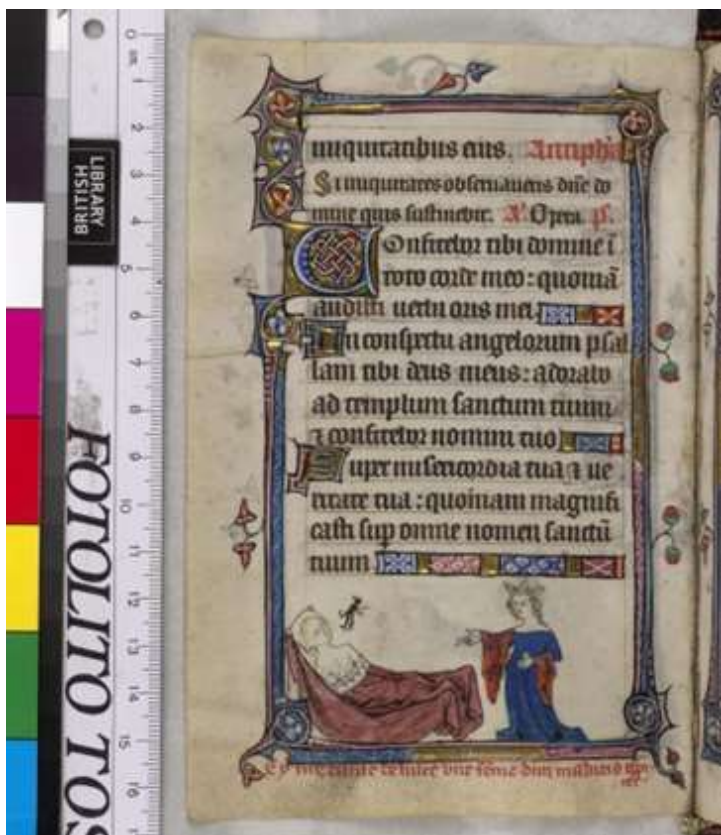 BRITISH
LIBRARY
FOTOLITO TOS
0 cm 1 2 3 4 5 6 7 8 9 10 11 12 13 14 15 16
iniquitatibus eius. Antipha
Si iniquitates observaveris dñe do
mine quis sustinebit. A' Opera p̄.
Confitebor tibi domine ī
toto corde meo: quoniā
audisti verba oris mei
In conspectu angelorum psal
lam tibi deus meus: adorabo
ad templum sanctum tuum
⁊ confitebor nomini tuo
Super misericordia tua ⁊ ve
ritate tua: quoniam magnifi
casti sup omne nomen sanctū
tuum